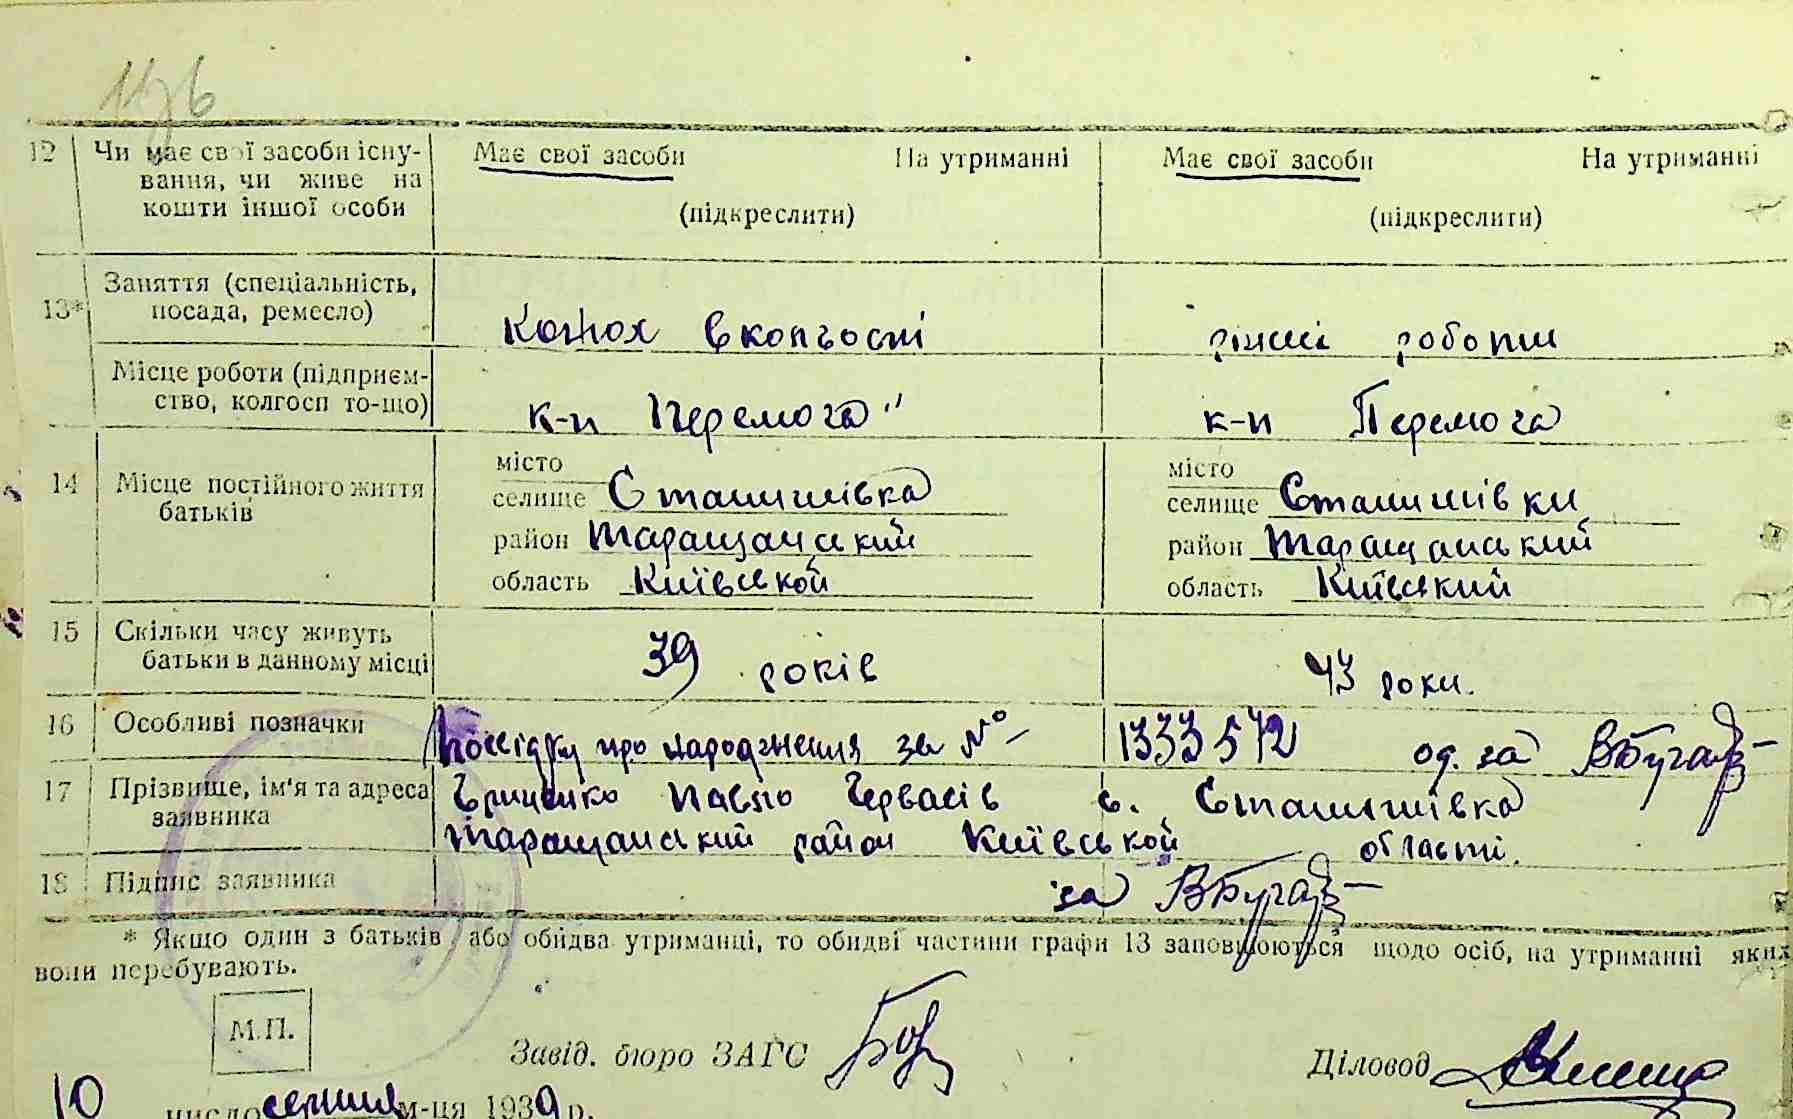 12 Чи має свої засоби існу-
вання, чи живе на
кошти іншої особи
Має свої засоби На утриманні
(підкреслити)
Має свої засоби На утриманні
(підкреслити)
13* Заняття (спеціальність,
посада, ремесло)
Конюх в колгоспі
різні роботи
Місце роботи (підприєм-
ство, колгосп то-що)
к-п Перемога"
к-п Перемога
14 Місце постійного життя
батьків
місто
селище Станишівка
район Таращанський
область Київської
місто
селище Станишівки
район Таращанський
область Київський
15 Скільки часу живуть
батьки в данному місці
39 років
43 роки.
16 Особливі позначки
про народження за № 1333572 од. за
17 Прізвище, ім'я та адреса
заявника
Гриценко Павло Гервасів с. Станишівка
Таращанський район Київської області.
18 Підпис заявника
за
* Якщо один з батьків, або обидва утриманці, то обидві частини графи 13 заповнюються щодо осіб, на утриманні яких
вони перебувають.
М.П.
Завід. бюро ЗАГС
Діловод
10 число серпня м-ця 1939 р.